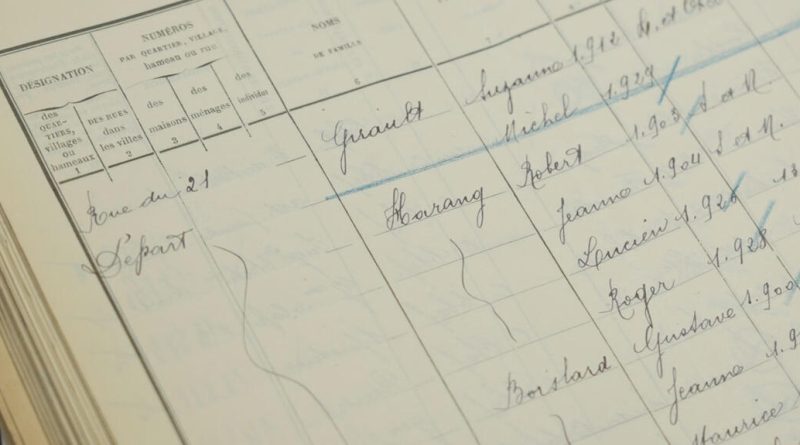 DÉSIGNATION
des QUAR-
TIERS,
villages
ou
hameaux
1
DES RUES
dans
les villes
2
NUMÉROS
PAR QUARTIER, VILLAGE,
hameau ou rue
des
maisons
3
des
ménages
4
des
individus
5
NOMS
DE FAMILLE
6
7
Rue du 21
Départ
Girault Suzanne 1.912
Michel 1.929
Harang Robert 1.903 S et M.
Jeanne 1.904 S et M.
Lucien 1.926 13
Roger 1.928
Boislard Gustave 1.900
Jeanne 1.9
Maurice